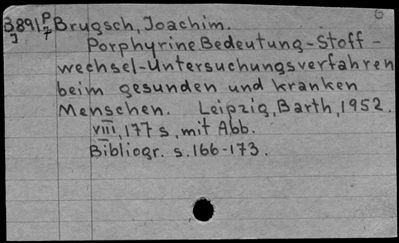 3891 P/7 Brugsch, Joachim.
J
Porphyrine Bedeutung-Stoff-
wechsel-Untersuchungsverfahren
beim gesunden und kranken
Menschen. Leipzig, Barth, 1952.
VIII, 177 s, mit Abb.
Bibliogr. s. 166-173.